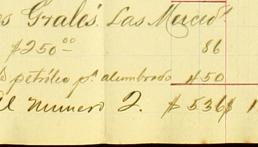 s Grales. Las Merced
$250 00 86
petróleo pa. alumbrado 450
el numero 2. $ 536 $ 1